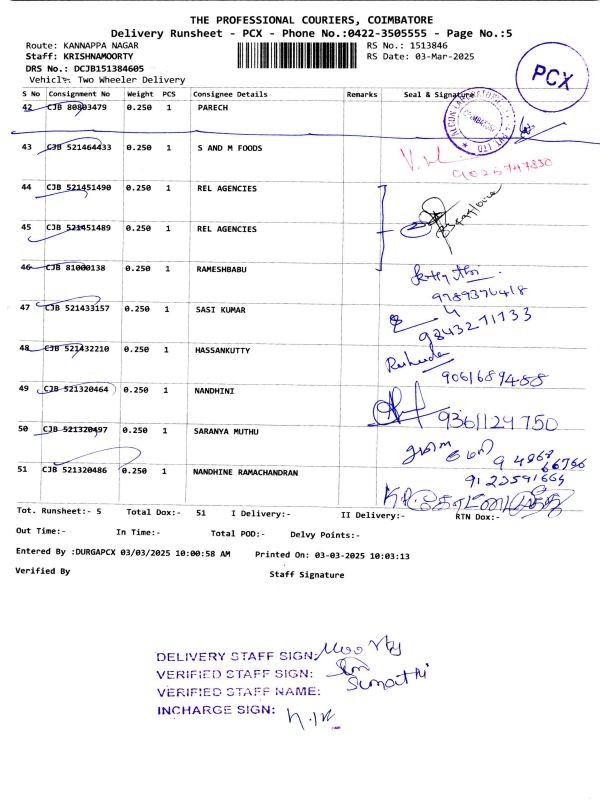 THE PROFESSIONAL COURIERS, COIMBATORE
Delivery Runsheet - PCX - Phone No.:0422-3505555 - Page No.:5
Route: KANNAPPA NAGAR RS No.: 1513846
Staff: KRISHNAMOORTY RS Date: 03-Mar-2025
DRS No.: DCJB151384605
Vehicle: Two Wheeler Delivery
PCX
S No Consignment No Weight PCS Consignee Details Remarks Seal & Signature
42 CJB 80803479 0.250 1 PARECH
43 CJB 521464433 0.250 1 S AND M FOODS
44 CJB 521451490 0.250 1 REL AGENCIES
45 CJB 521451489 0.250 1 REL AGENCIES
46 CJB 81000138 0.250 1 RAMESHBABU
9789376418
47 CJB 521433157 0.250 1 SASI KUMAR
9843271133
48 CJB 521432210 0.250 1 HASSANKUTTY
9061689488
49 CJB 521320464 0.250 1 NANDHINI
9361124750
50 CJB 521320497 0.250 1 SARANYA MUTHU
51 CJB 521320486 0.250 1 NANDHINE RAMACHANDRAN
Tot. Runsheet:- 5 Total Dox:- 51 I Delivery:- II Delivery:- RTN Dox:-
Out Time:- In Time:- Total POD:- Delvy Points:-
Entered By :DURGAPCX 03/03/2025 10:00:58 AM Printed On: 03-03-2025 10:03:13
Verified By Staff Signature
DELIVERY STAFF SIGN:
VERIFIED STAFF SIGN:
VERIFIED STAFF NAME: Sumathi
INCHARGE SIGN: